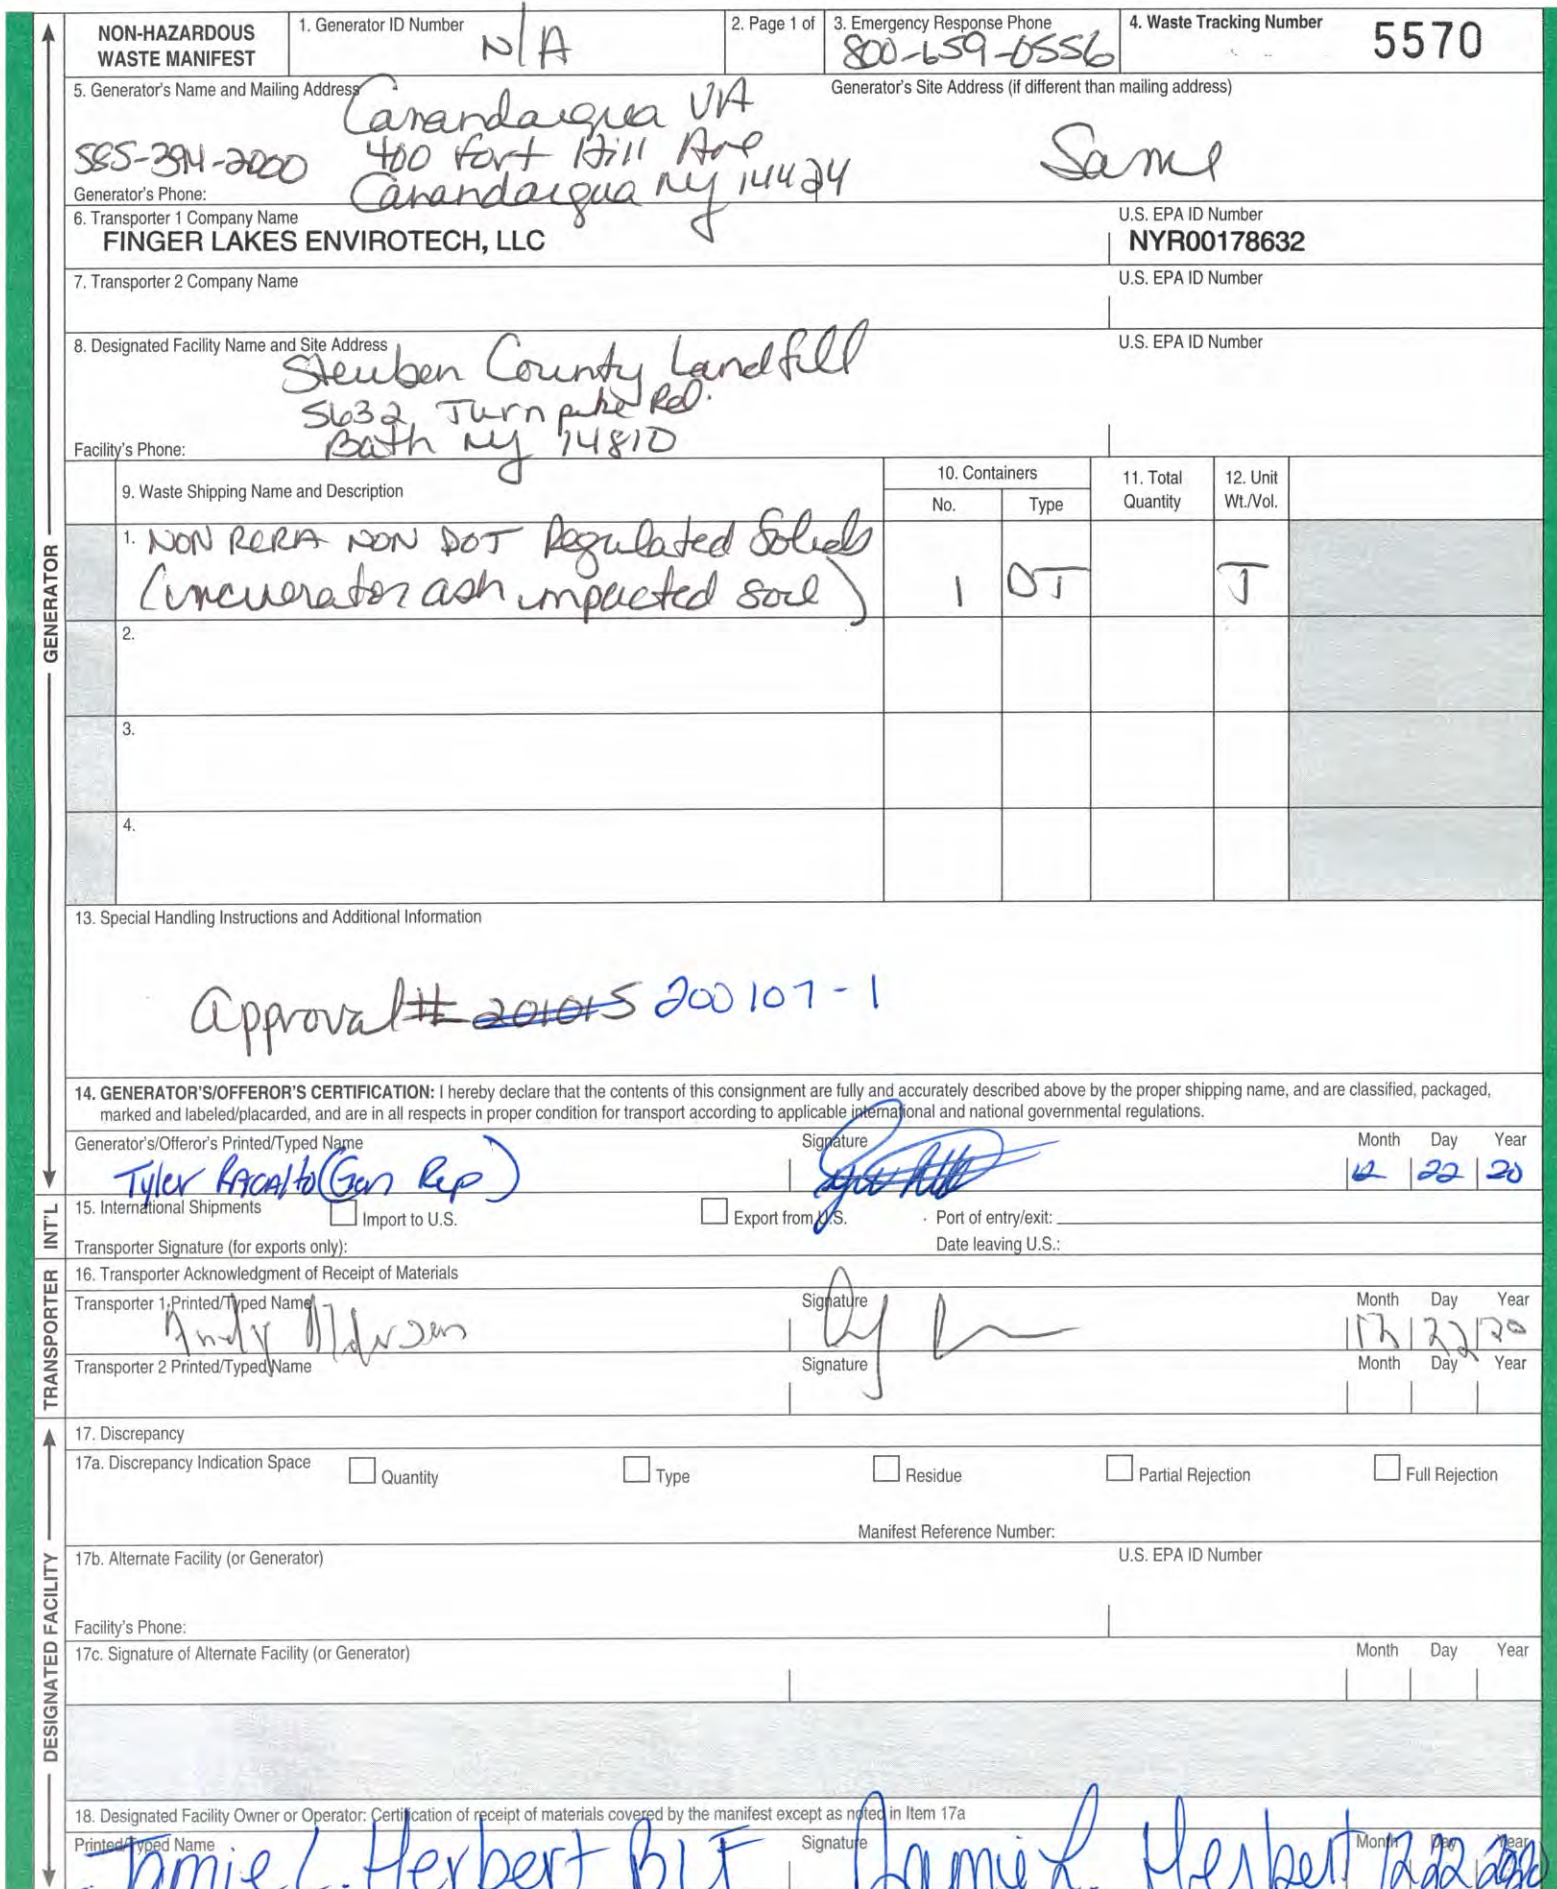 NON-HAZARDOUS WASTE MANIFEST
1. Generator ID Number
N/A
2. Page 1 of
3. Emergency Response Phone
800-659-0556
4. Waste Tracking Number
5570
5. Generator's Name and Mailing Address
Generator's Site Address (if different than mailing address)
Canandaigua VA
400 Fort Hill Ave
Canandaigua NY 14424
Same
585-394-2000
Generator's Phone:
6. Transporter 1 Company Name
U.S. EPA ID Number
FINGER LAKES ENVIROTECH, LLC
NYR00178632
7. Transporter 2 Company Name
U.S. EPA ID Number
8. Designated Facility Name and Site Address
U.S. EPA ID Number
Steuben County Landfill
5632 Turnpike Rd.
Bath NY 14810
Facility's Phone:
9. Waste Shipping Name and Description
10. Containers
No.
Type
11. Total Quantity
12. Unit Wt./Vol.
1. NON RCRA NON DOT Regulated Solids
(incinerator ash impacted soil)
1
DT
T
2.
3.
4.
13. Special Handling Instructions and Additional Information
Approval # 201015 200107-1
14. GENERATOR'S/OFFEROR'S CERTIFICATION: I hereby declare that the contents of this consignment are fully and accurately described above by the proper shipping name, and are classified, packaged,
marked and labeled/placarded, and are in all respects in proper condition for transport according to applicable international and national governmental regulations.
Generator's/Offeror's Printed/Typed Name
Signature
Month Day Year
Tyler (Gen Rep)
12 22 20
15. International Shipments
Import to U.S.
Export from U.S.
Port of entry/exit:
Transporter Signature (for exports only):
Date leaving U.S.:
16. Transporter Acknowledgment of Receipt of Materials
Transporter 1 Printed/Typed Name
Signature
Month Day Year
Andy
12 22 20
Transporter 2 Printed/Typed Name
Signature
Month Day Year
17. Discrepancy
17a. Discrepancy Indication Space
Quantity
Type
Residue
Partial Rejection
Full Rejection
Manifest Reference Number:
17b. Alternate Facility (or Generator)
U.S. EPA ID Number
Facility's Phone:
17c. Signature of Alternate Facility (or Generator)
Month Day Year
18. Designated Facility Owner or Operator: Certification of receipt of materials covered by the manifest except as noted in Item 17a
Printed/Typed Name
Signature
Month Day Year
Jamie L. Herbert BLF
Jamie L. Herbert
12 22 2020
GENERATOR
INT'L
TRANSPORTER
DESIGNATED FACILITY